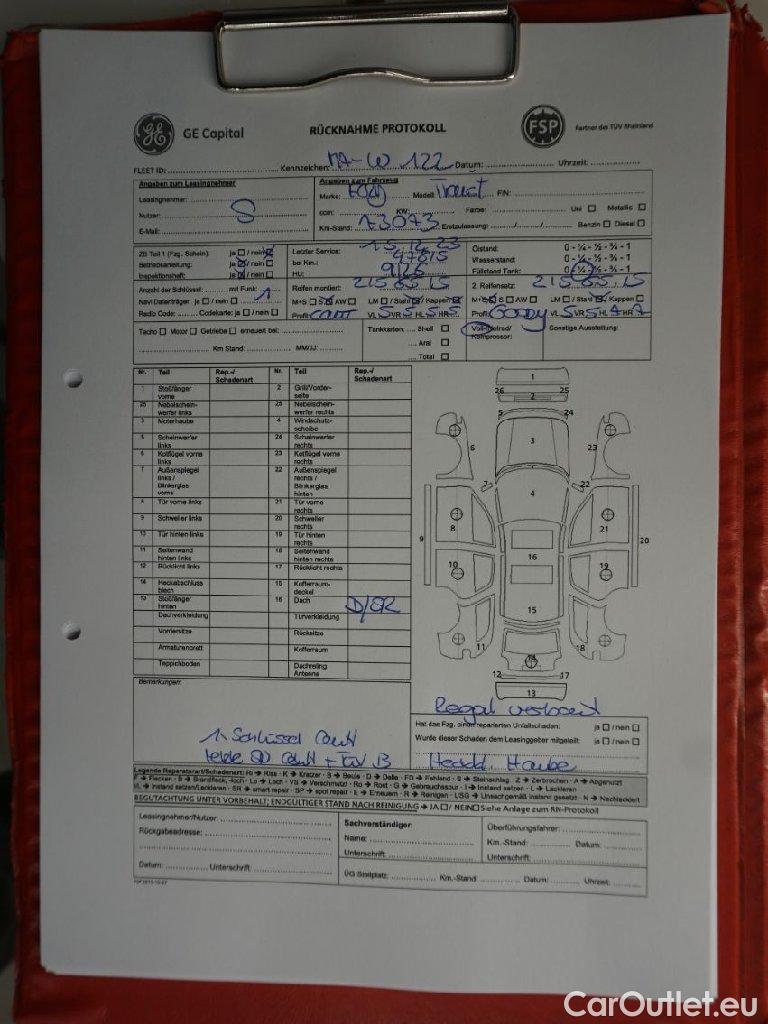 GE Capital
RÜCKNAHME PROTOKOLL
FSP
Partner des TÜV Rheinland
FLEET ID: Kennzeichen: MA-W 122 Datum: Uhrzeit:
Angaben zum Leasingnehmer
Leasingnehmer:
Nutzer:
E-Mail:
Angaben zum Fahrzeug
Marke: Ford Modell: FIN:
ccm: KW: Farbe: Uni Metallic
Km-Stand: 173073 Erstzulassung: Benzin Diesel
ZB Teil 1 (Fzg. Schein): ja / nein
Betriebsanleitung: ja / nein
Inspektionsheft: ja / nein
Letzter Service: 15.12.23
bei Km.:
HU: 9/26
Ölstand: 0 - ¼ - ½ - ¾ - 1
Wasserstand 0 - ¼ - ½ - ¾ - 1
Füllstand Tank: 0 - ¼ - ½ - ¾ - 1
Anzahl der Schlüssel: mit Funk: 1
Navi Datenträger: ja / nein
Radio Code: Codekarte: ja / nein
Reifen montiert: 215 65 15
M+S S AW LM / Stahl / Kappen
Profil: Conti VL 5 VR 5 HL 5 HR 5
2. Reifensatz: 215 65 15
M+S S AW LM / Stahl / Kappen
Profil: Goody VL 5 VR 5 HL 4 HR 7
Tacho Motor Getriebe erneuert bei:
Km Stand: MM/JJ:
Tankkarten: Shell
Aral
Total
Voll-/Notrad/
Kompressor:
Sonstige Ausstattung:
Nr. Teil Rep.-/Schadenart Nr. Teil Rep.-/Schadenart
1 Stoßfänger vorne 2 Grill/Vorderseite
25 Nebelscheinwerfer links 26 Nebelscheinwerfer rechts
3 Motorhaube 4 Windschutzscheibe
5 Scheinwerfer links 24 Scheinwerfer rechts
6 Kotflügel vorne links 23 Kotflügel vorne rechts
7 Außenspiegel links / Blinkerglas vorne 22 Außenspiegel rechts / Blinkerglas hinten
8 Tür vorne links 21 Tür vorne rechts
9 Schweller links 20 Schweller rechts
10 Tür hinten links 19 Tür hinten rechts
11 Seitenwand hinten links 18 Seitenwand hinten rechts
12 Rücklicht links 17 Rücklicht rechts
14 Heckabschlussblech 15 Kofferraumdeckel
13 Stoßfänger hinten 16 Dach D/ER
Dachverkleidung Türverkleidung
Vordersitze Rücksitze
Armaturenbrett Kofferraum
Teppichboden Dachreling Antenne
1
26 2 25
5 24
6 3 23
7 22
4
8 21
9 20
16
10 19
15
11 18
14
12 17
13
Bemerkungen:
1 Schlüssel
Regal verbaut
Hat das Fzg. einen reparierten Unfallschaden: ja / nein
Wurde dieser Schaden dem Leasinggeber mitgeteilt: ja / nein
Haube
Legende Reparaturart/Schadenart: F → Flecken · B → Brandfleck,-loch · La → Loch · Va → Verschmutzt · Ro → Rost · G → Gebrauchsspur · I → Instand setzen · L → Lackieren
BEGUTACHTUNG UNTER VORBEHALT; ENDGÜLTIGER STAND NACH REINIGUNG → JA / NEIN Siehe Anlage zum RN-Protokoll
Leasingnehmer/Nutzer:
Rückgabeadresse:
Datum: Unterschrift:
Sachverständiger
Name:
Unterschrift:
Überführungsfahrer:
Km.-Stand: Datum:
Unterschrift:
ÜG Stellplatz: Km.-Stand Datum: Uhrzeit:
CarOutlet.eu